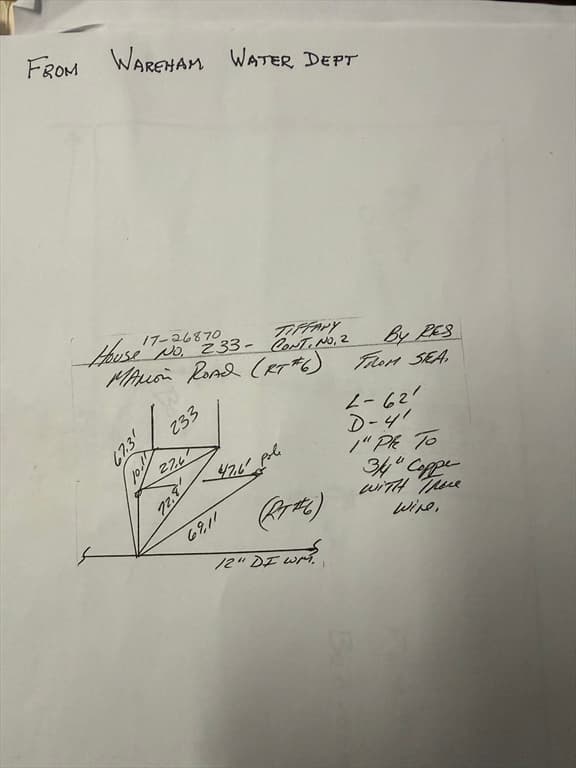 FROM WAREHAM WATER DEPT
17-26870
HOUSE NO. 233- TIFFANY CONT. NO. 2 BY RES
MARION ROAD (RT#6) FROM SEA.
L-62'
D-4'
1" PE TO
3/4" COPPER
WITH TRACE
WIRE.
233
67.3'
10.1'
27.6'
72.8'
47.6'
pole
69.1'
(RT#6)
12" DI WM.